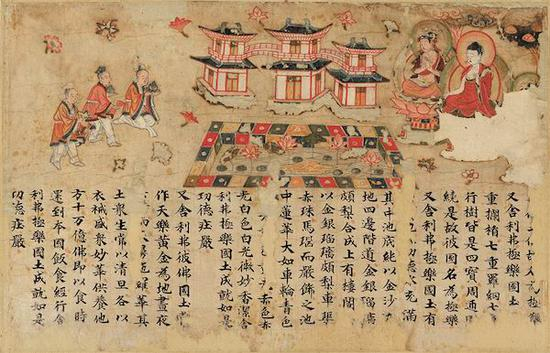 又舍利弗極樂國土
重欄楯七重羅網七
行樹皆是四寶周迊
繞是故彼國名為極樂
又舍利弗極樂國土有
功德水充滿
其中池底純以金沙
地四邊階道金銀瑠璃
頗梨合成上有樓閣
以金銀瑠璃頗梨車璖
赤珠馬瑙而嚴飾之池
中蓮華大如車輪青色
赤色赤
光白色白光微妙香潔舍
利弗極樂國土成就如是
功德莊嚴
又舍利弗彼佛國土
作天樂黃金為地晝夜
而 華其
土眾生常以清旦各以
衣裓盛眾妙華供養他
方十万億佛即以食時
還到本國飯食經行舍
利弗極樂國土成就如是
功德莊嚴